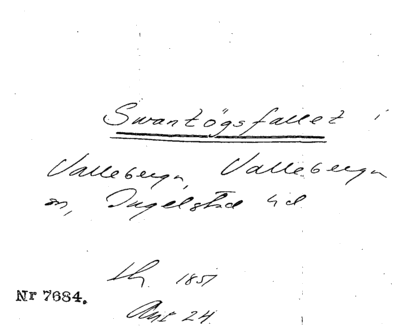 Svantögsfallet i
Valleberga, Valleberga
sn, Ingelstad hd
Nr 7684.
1851
24